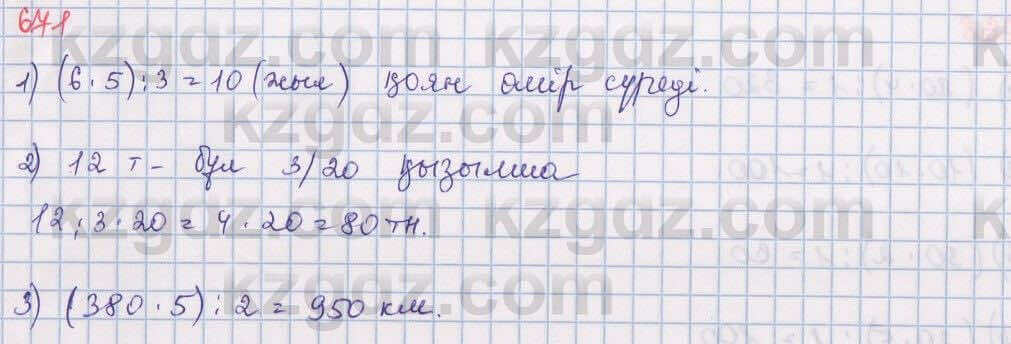 671
kzgdz.com
1) (6·5):3=10 (жыл) қоян өмір сүреді.
kzgdz.com
2) 12 т - бұл 3/20 қызылша
12:3·20=4·20=80тн.
kzgdz.com
3) (380·5):2=950 км.